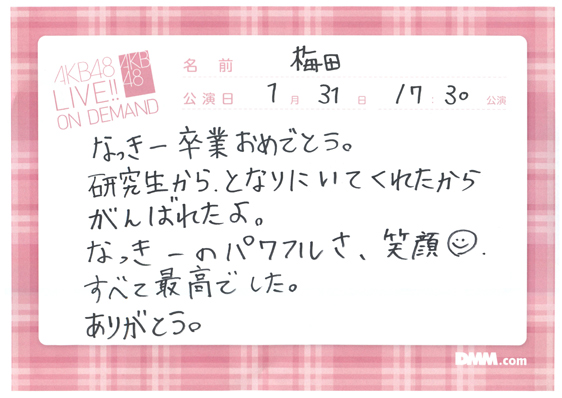 AKB48
LIVE!!
ON DEMAND
AKB
48
名前 梅田
公演日 7月31日 17:30公演
なっきー卒業おめでとう。
研究生から、となりにいてくれたから
がんばれたよ。
なっきーのパワフルさ、笑顔.
すべて最高でした。
ありがとう。
DMM.com